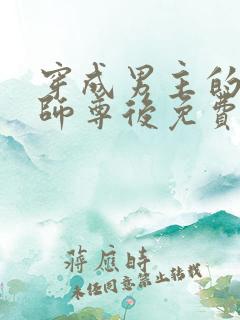 穿成男主的
師尊後免費
蔣應時
未經同意禁止轉載